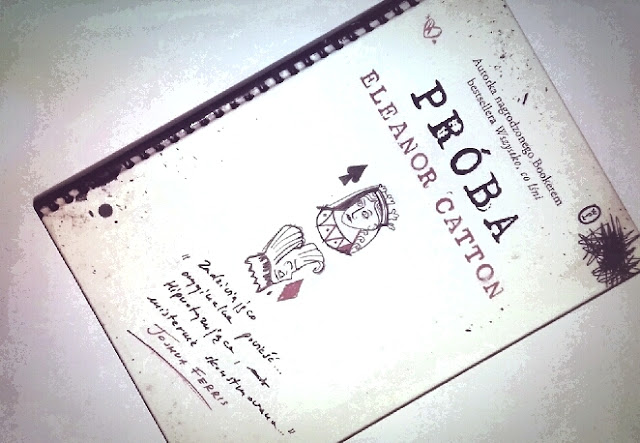 Autorka nagrodzonego Bookerem
bestsellera Wszystko, co lśni
PRÓBA
ELEANOR CATTON
"Zadziwiająco
oryginalna powieść...
Hipnotyzująca i
misternie skonstruowana..."
JOSHUA FERRIS